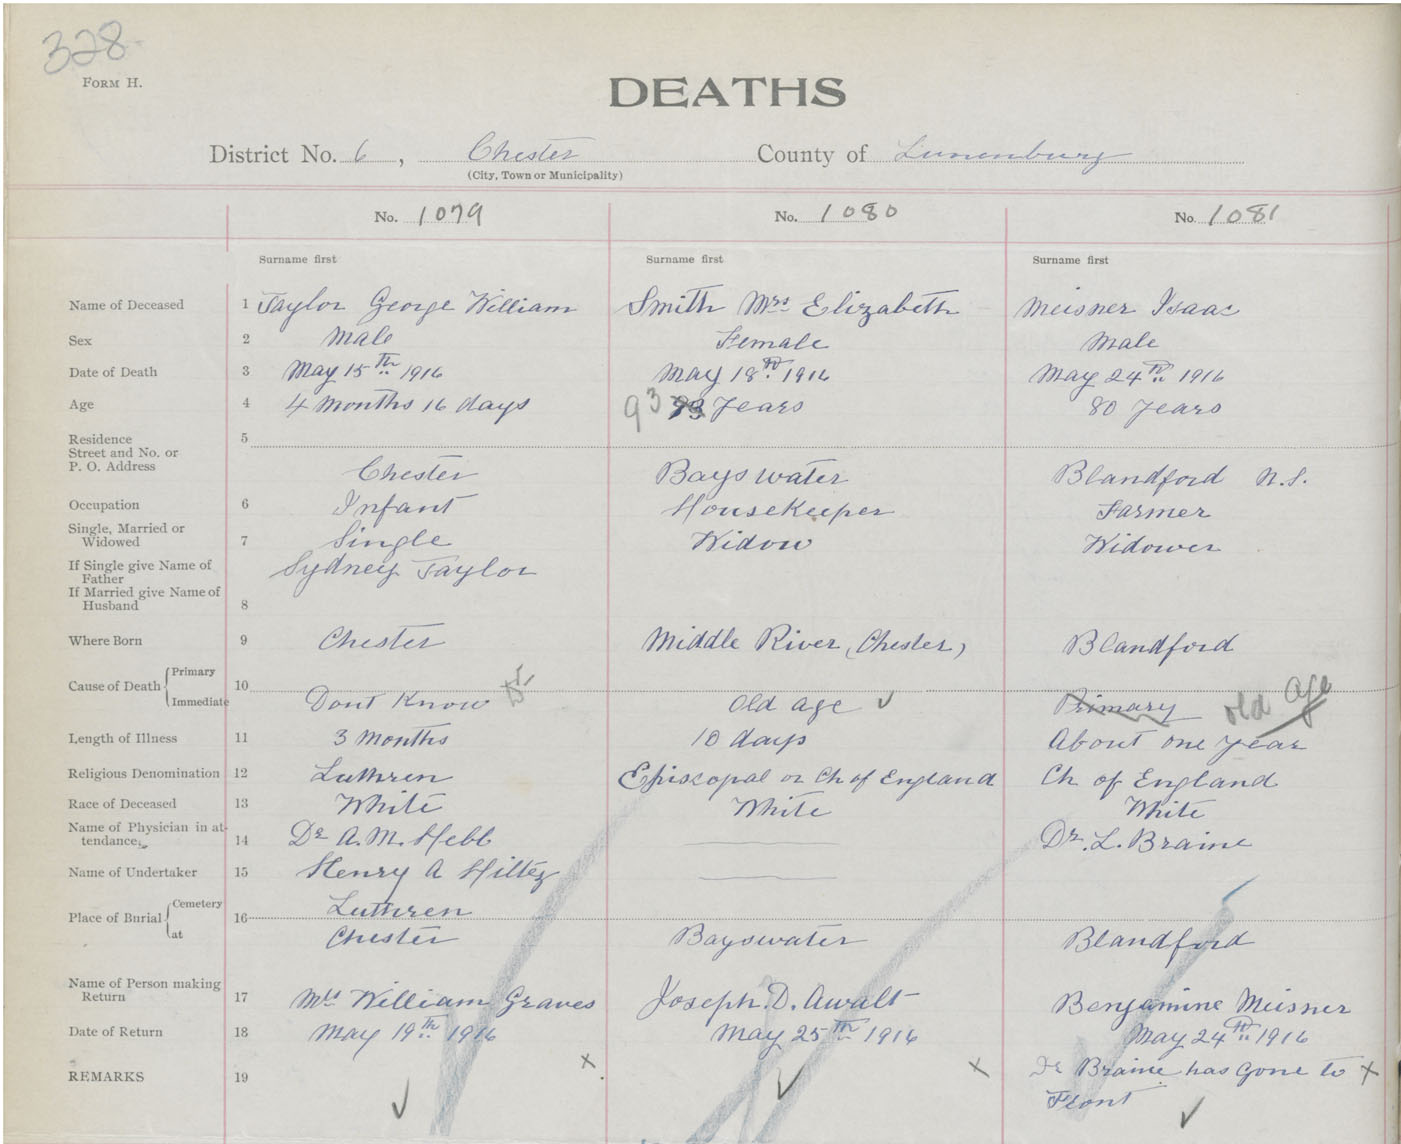 328
FORM H.
DEATHS
District No. 6, Chester County of Lunenburg
(City, Town or Municipality)
No. 1079 No. 1080 No. 1081
Surname first Surname first Surname first
Name of Deceased 1 Taylor George William Smith Mrs Elizabeth Meisner Isaac
Sex 2 Male Female Male
Date of Death 3 May 15th 1916 May 18th 1916 May 24th 1916
Age 4 4 Months 16 days 93 93 Years 80 Years
Residence 5
Street and No. or
P. O. Address Chester Bayswater Blandford N.S.
Occupation 6 Infant HouseKeeper Farmer
Single, Married or
Widowed 7 Single Widow Widower
If Single give Name of
Father Sydney Taylor
If Married give Name of
Husband 8
Where Born 9 Chester Middle River (Chester) Blandford
Cause of Death Primary 10
Immediate Dont Know Old Age Primary old Age
Length of Illness 11 3 Months 10 days About one Year
Religious Denomination 12 Luthren Episcopal or Ch of England Ch of England
Race of Deceased 13 White White White
Name of Physician in at-
tendance. 14 Dr A. M. Hebb Dr. L. Braine
Name of Undertaker 15 Henry A Hiltz
Place of Burial Cemetery 16 Luthren
at Chester Bayswater Blandford
Name of Person making
Return 17 Mrs William Graves Joseph. D. Awalt Benjamine Meisner
Date of Return 18 May 19th 1916 May 25th 1916 May 24th 1916
REMARKS 19 x x Dr Braine has gone to x
Front